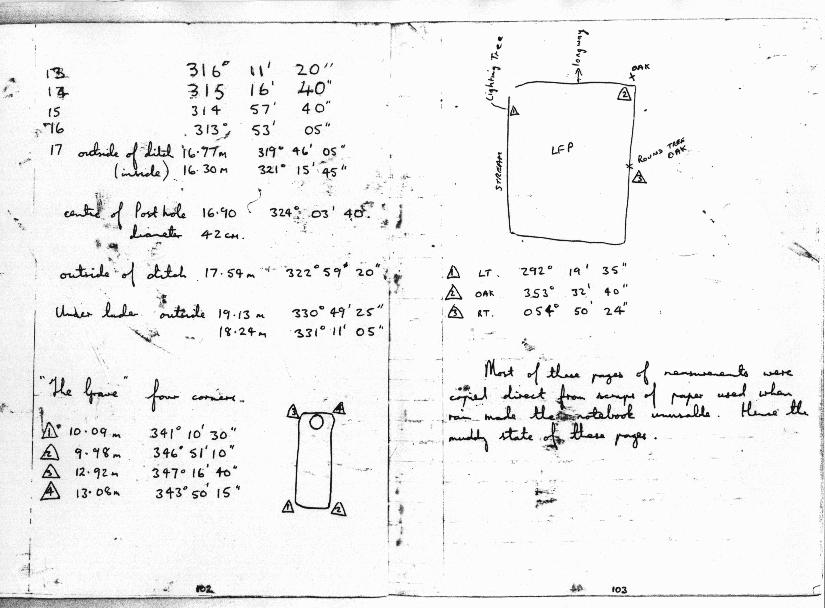 13 316° 11' 20"
14 315 16' 40"
15 314 57' 40"
16 313° 53' 05"
17 outside of ditch 16.77m 319° 46' 05"
(inside) 16.30m 321° 15' 45"
centre of Post hole 16.90 324° 03' 40"
diameter 42cm.
outside of ditch 17.54m 322° 59' 20"
outside 19.13m 330° 49' 25"
18.24m 331° 11' 05"
"The Grave" four corners.
1 10.09m 341° 10' 30"
2 9.98m 346° 51' 10"
3 12.92m 347° 16' 40"
4 13.08m 343° 50' 15"
3 4
1 2
102
Lighting Tree
OAK
2
1
LFP
STREAM
ROUND TREE
OAK
3
1 LT. 292° 19' 35"
2 OAK 353° 32' 40"
3 RT. 054° 50' 24"
Most of these pages of measurements were
copied direct from scraps of paper used when
rain made the notebook unusable. Hence the
muddy state of these pages.
103